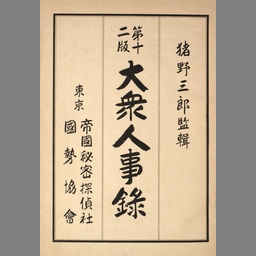 猪野三郎監輯
第十二版
大衆人事錄
東京
帝國秘密探偵社
國勢協會